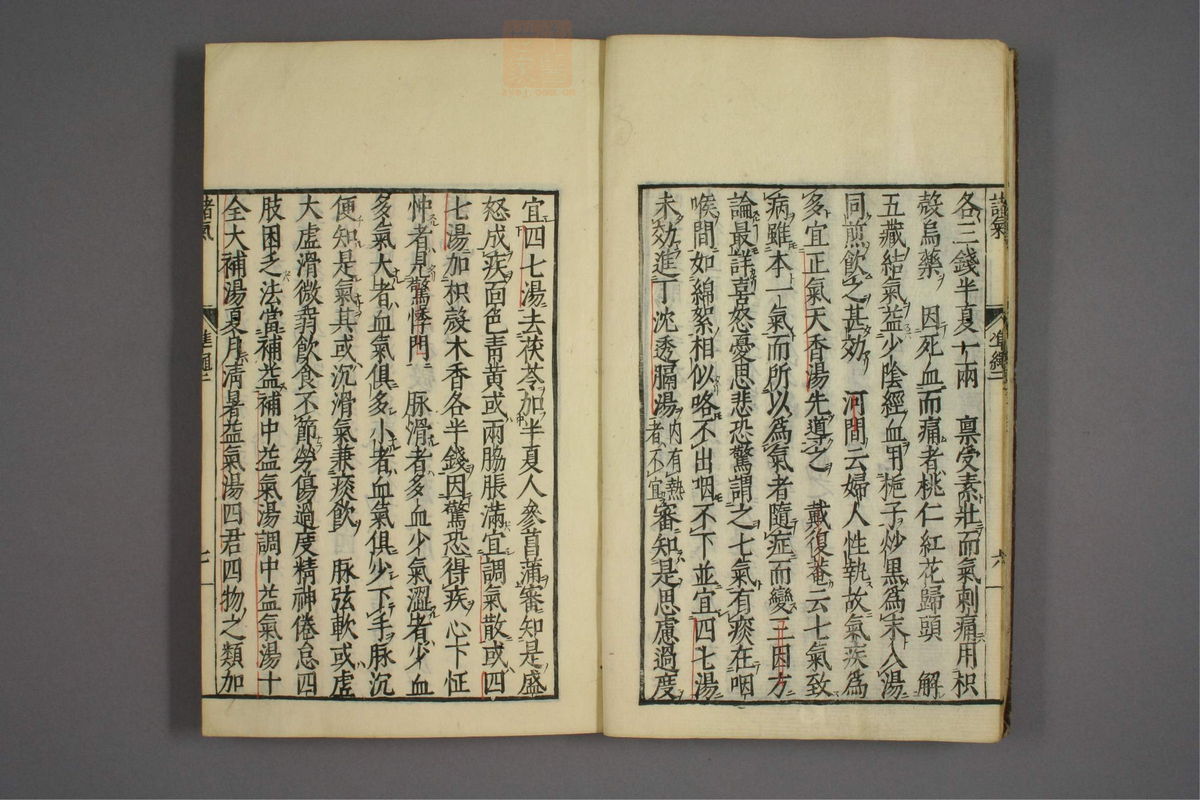 諸氣
準繩二
六
各三錢半夏十兩　稟受素壯而氣刺痛用枳
殼烏藥　因死血而痛者桃仁紅花歸頭　解
五藏結氣益少陰經血用梔子炒黑爲末入湯
同煎飲之甚効　河間云婦人性執故氣疾爲
多宜正氣天香湯先導之　戴復菴云七氣致
病雖本一氣而所以爲氣者隨症而變三因方
論最詳喜怒憂思悲恐驚謂之七氣有痰在咽
喉間如綿絮相似咯不出咽不下並宜四七湯
未効進丁沈透膈湯内有熱者不宜審知是思慮過度
宜四七湯去茯苓加半夏人參菖蒲審知是盛
怒成疾面色青黄或兩脇脹滿宜調氣散或四
七湯加枳殼木香各半錢因驚恐得疾心下怔
忡者見驚悸門　脉滑者多血少氣澀者少血
多氣大者血氣俱多小者血氣俱少下手脉沉
便知是氣其或沉滑氣兼痰飲　脉弦軟或虛
大虛滑微弱飲食不節勞傷過度精神倦怠四
肢困乏法當補益補中益氣湯調中益氣湯十
全大補湯夏月淸暑益氣湯四君四物之類加
諸氣
準繩二
七